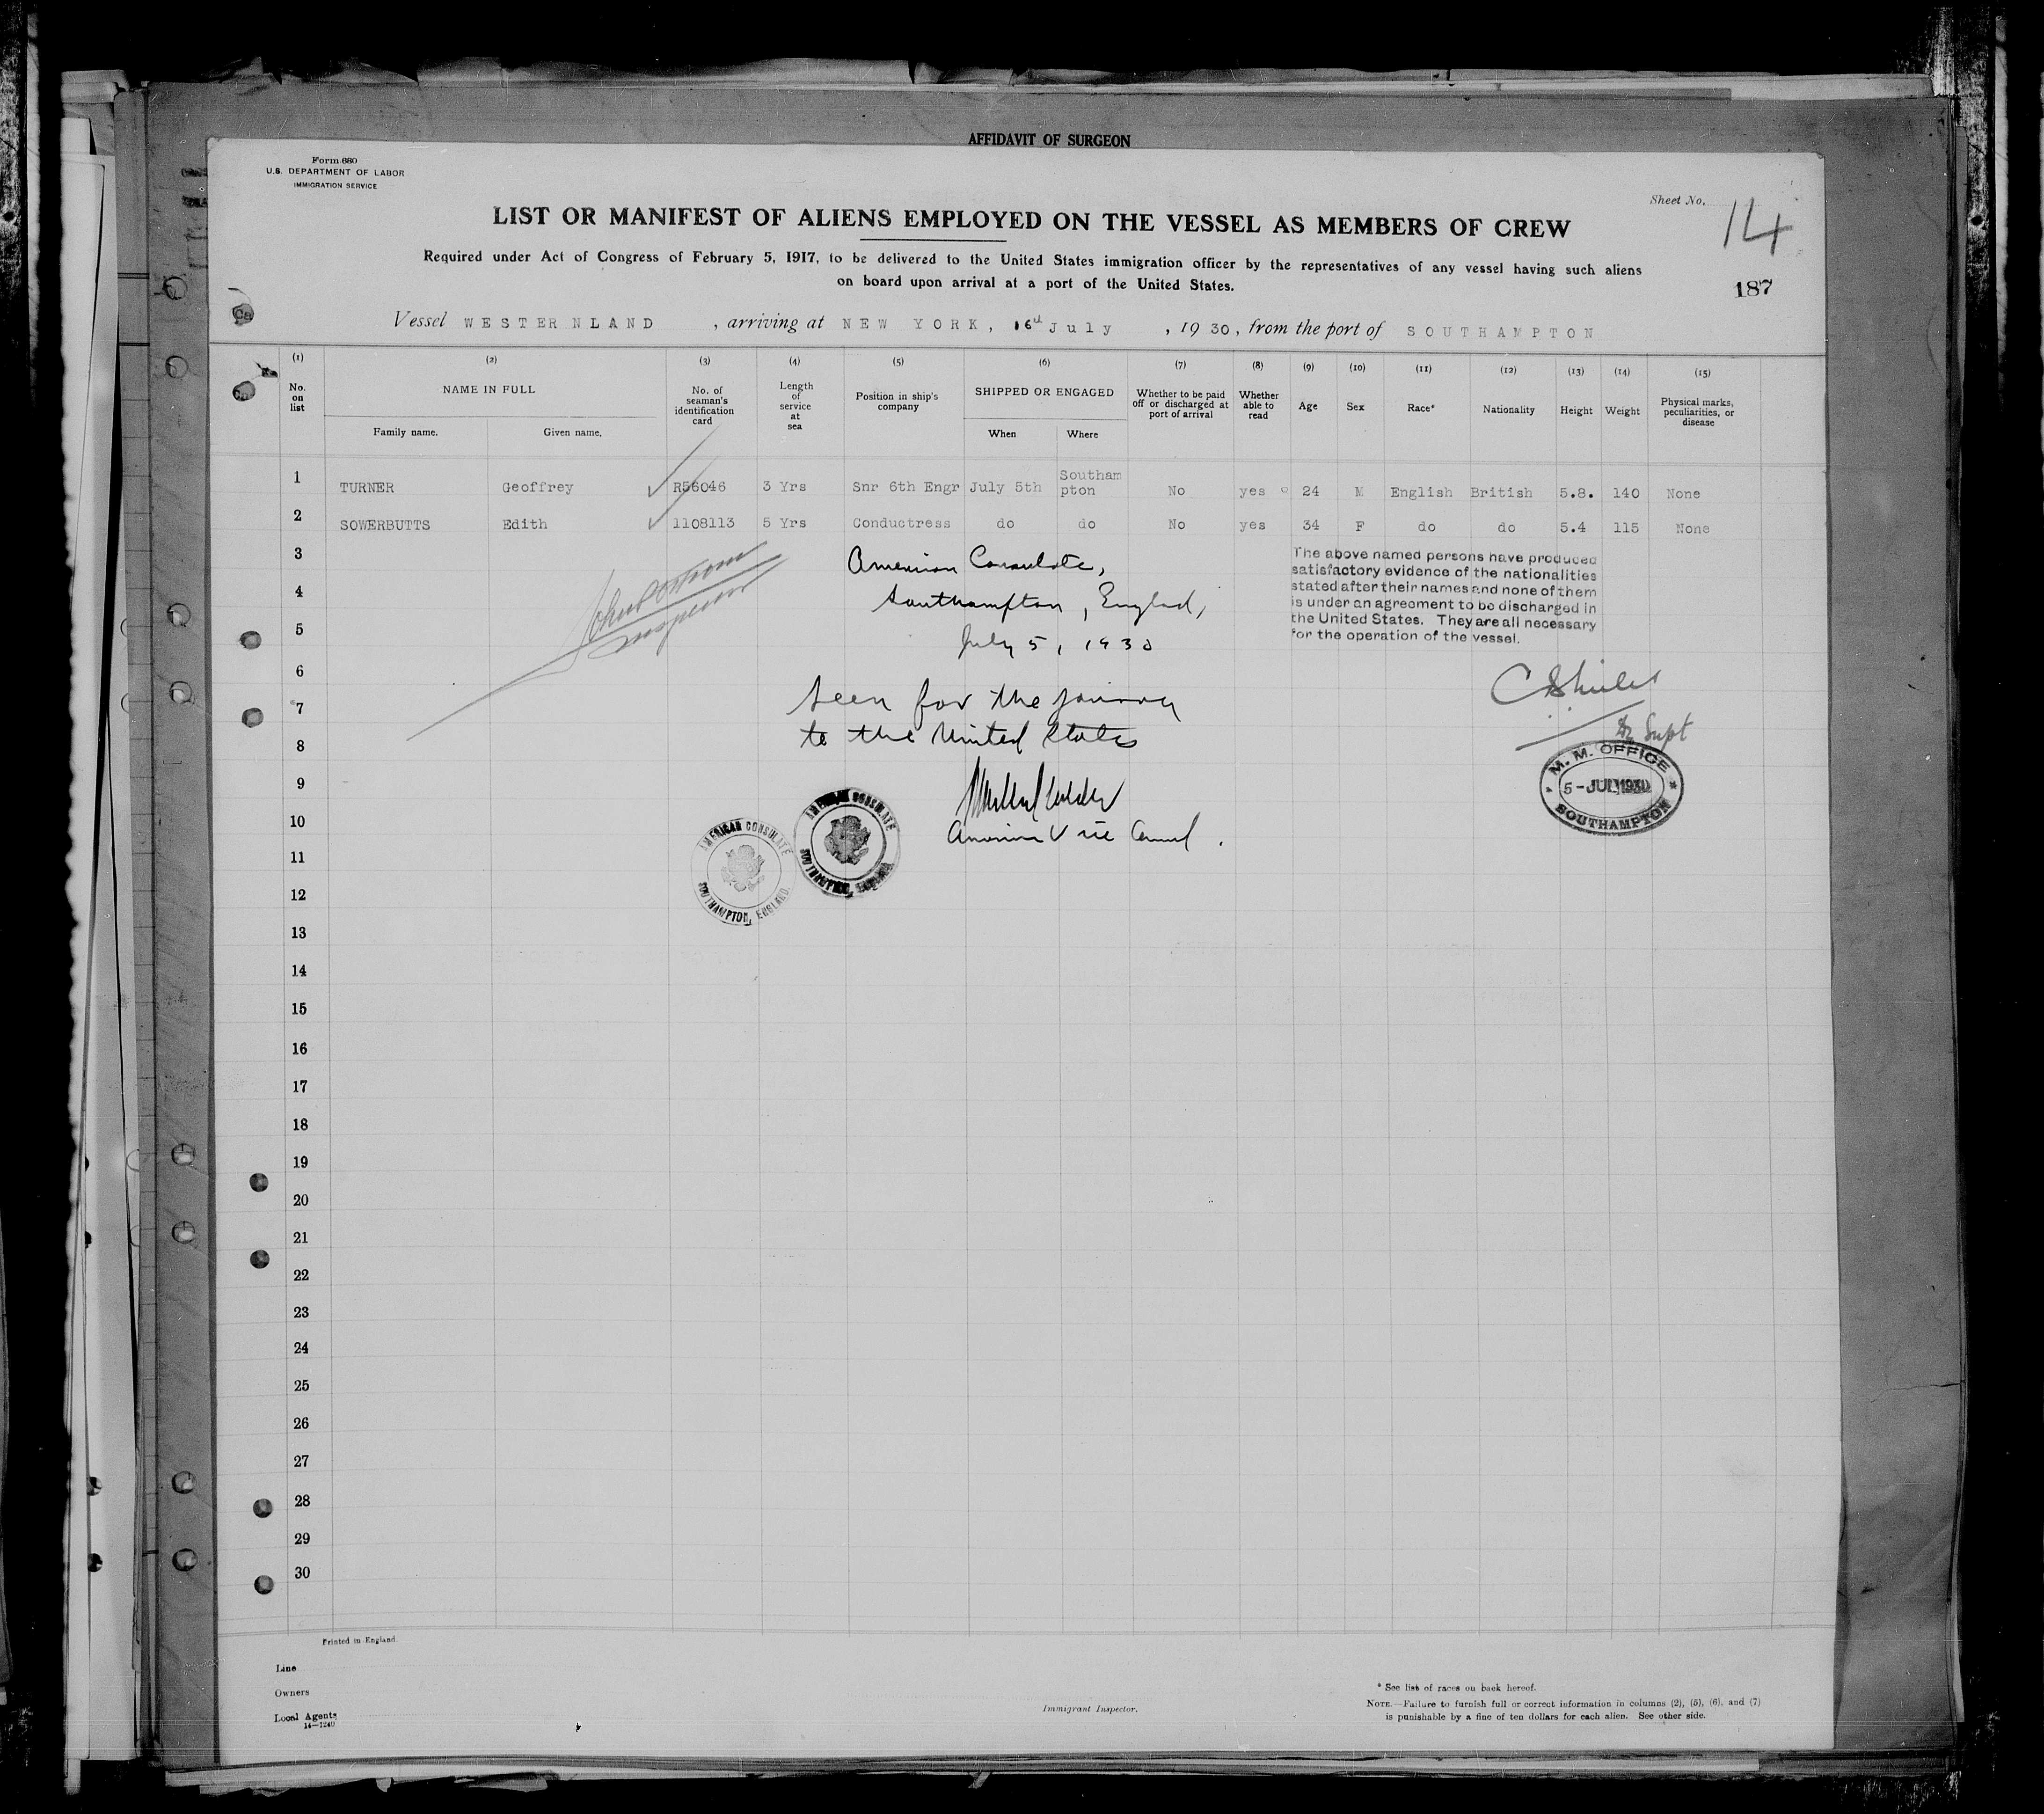 AFFIDAVIT OF SURGEON
Form 680
U.S. DEPARTMENT OF LABOR
IMMIGRATION SERVICE
Sheet No. 14
LIST OR MANIFEST OF ALIENS EMPLOYED ON THE VESSEL AS MEMBERS OF CREW
Required under Act of Congress of February 5, 1917, to be delivered to the United States immigration officer by the representatives of any vessel having such aliens
on board upon arrival at a port of the United States.
187
Vessel WESTERNLAND, arriving at NEW YORK, 16th July, 1930, from the port of SOUTHAMPTON
(1) (2) (3) (4) (5) (6) (7) (8) (9) (10) (11) (12) (13) (14) (15)
No. on list
NAME IN FULL
Family name. Given name.
No. of seaman's identification card
Length of service at sea
Position in ship's company
SHIPPED OR ENGAGED
When Where
Whether to be paid off or discharged at port of arrival
Whether able to read
Age
Sex
Race*
Nationality
Height
Weight
Physical marks, peculiarities, or disease
1 TURNER Geoffrey R56046 3 Yrs Snr 6th Engr July 5th Southampton No yes 24 M English British 5.8. 140 None
2 SOWERBUTTS Edith 1108113 5 Yrs Conductress do do No yes 34 F do do 5.4 115 None
3
4
5
6
7
8
9
10
11
12
13
14
15
16
17
18
19
20
21
22
23
24
25
26
27
28
29
30
American Consulate,
Southampton, England,
July 5, 1930
Seen for the journey
to the United States
American Vice Consul.
Inspector
The above named persons have produced
satisfactory evidence of the nationalities
stated after their names and none of them
is under an agreement to be discharged in
the United States. They are all necessary
for the operation of the vessel.
Supt
M. M. OFFICE
5-JUL 1930
SOUTHAMPTON
AMERICAN CONSULATE
SOUTHAMPTON, ENGLAND.
AMERICAN CONSULATE
SOUTHAMPTON, ENGLAND
Printed in England.
Line
Owners
Local Agents
14—1240
Immigrant Inspector.
* See list of races on back hereof.
NOTE.—Failure to furnish full or correct information in columns (2), (5), (6), and (7)
is punishable by a fine of ten dollars for each alien. See other side.